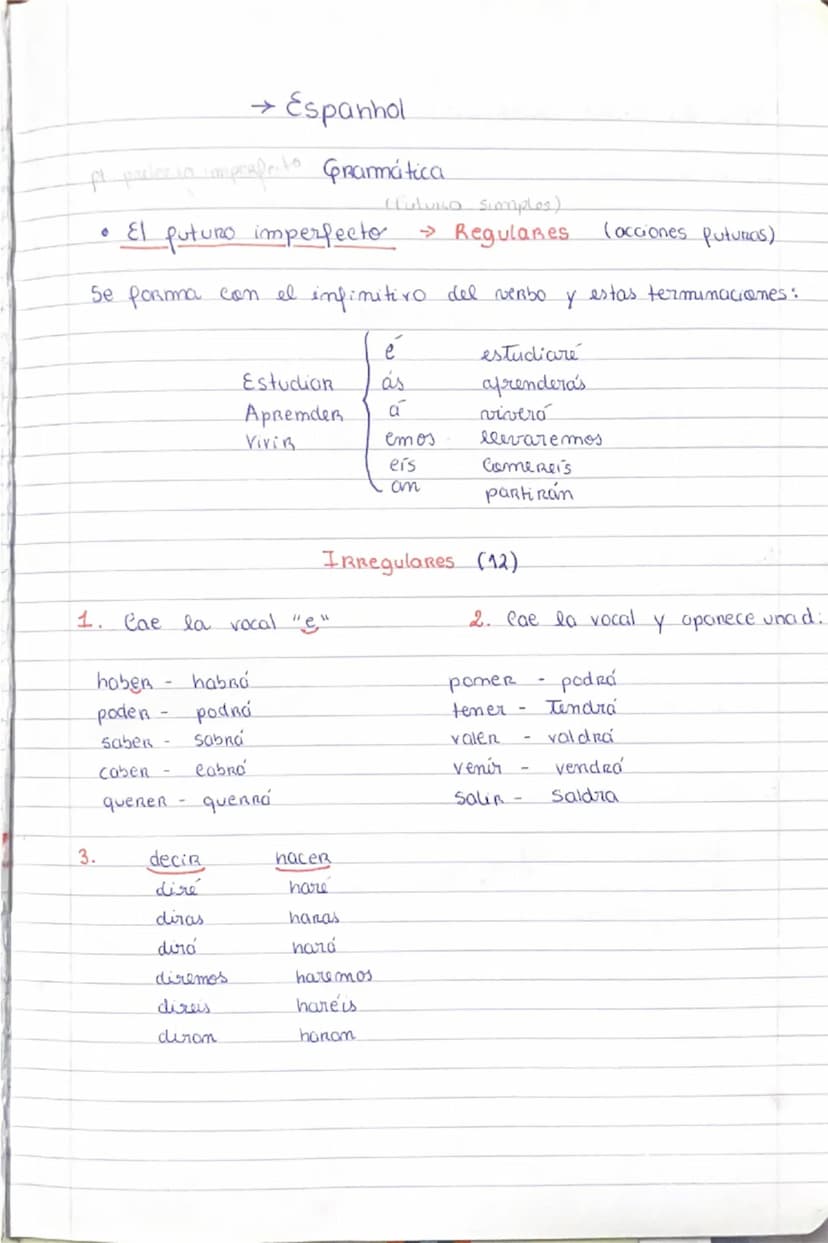 → Espanhol
pt pretérito imperfeito Gramática
(Futuro simples)
• El futuro imperfecto → Regulares (acciones futuras)
Se forma con el infinitivo del verbo y estas terminaciones:
é estudiaré
Estudiar ás aprenderás
Aprender á viverá
Vivir emos llevaremos
eís comereís
an partirán
Irregulares (12)
1. Cae la vocal "e" 2. Cae la vocal y aparece una d:
haber - habrá poner - podrá
poder - podrá tener - Tendrá
saber - sabrá valer - valdrá
caber - cabrá venir - vendrá
querer - querrá salir - Saldra
3. decir hacer
diré haré
diras haras
dirá hará
diremos haremos
direis haréis
diran haran